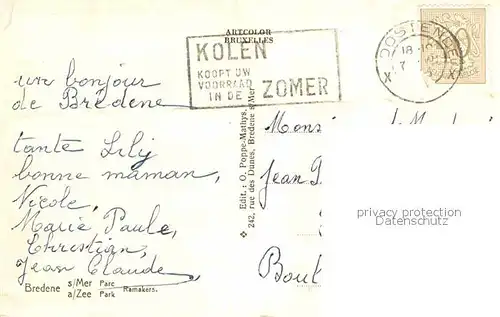 ARTCOLOR
BRUXELLES
KOLEN
KOOPT UW
VOORRAAD
IN DE ZOMER
OOSTENDE
18-19
7
X X
un bonjour
de Bredene
tante Lily
bonne maman,
Nicole,
Marie Paule,
Christian,
Jean Claude
Bredene s/Mer Parc Ramakers.
a/Zee Park
Edit.: O. Poppe-Mathys,
242, rue des Dunes, Bredene s/Mer
Jean
privacy protection
Datenschutz